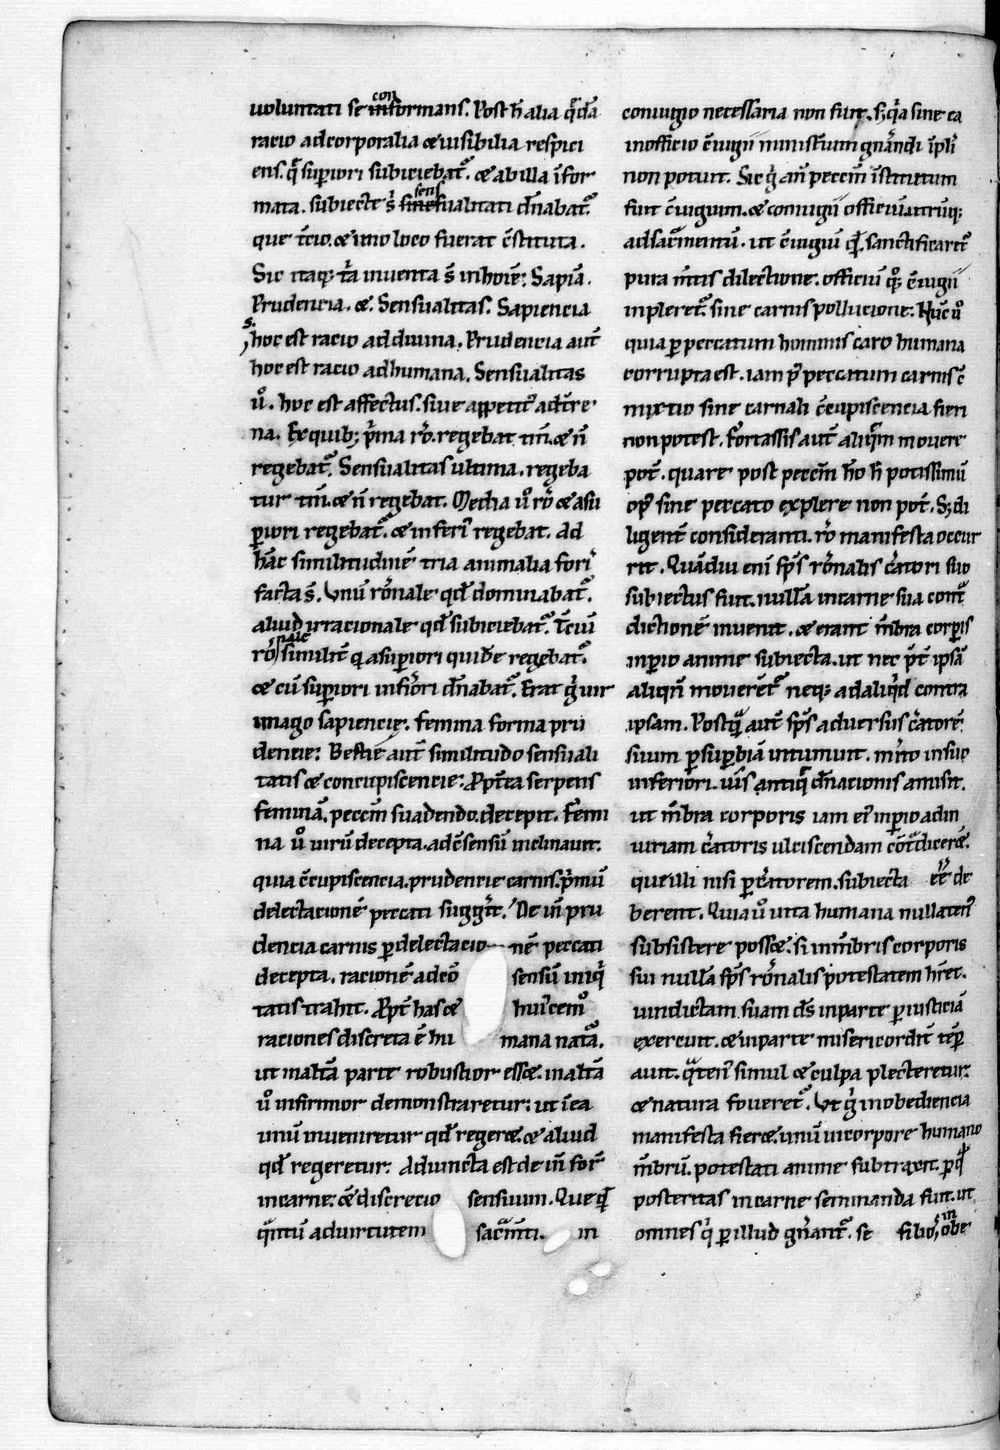 uoluntati se conformans. Post h̄ alia q̄dā
racio ad corporalia & uisibilia respici
ens. q̄ supiori subiciebat᷑. & ab illa īfor
mata. subiecte s̄ sensualitati dn̄abat᷑.
que t̄cio. & imo loco fuerat c̄stituta.
Sic itaq; t̄a inuenta s̄ in hoīe: Sapīa.
Prudencia. &. Sensualitas. Sapiencia
hoc est racio ad diuina. Prudencia aut̄
hoc est racio ad humana. Sensualitas
u᷎. hoc est affectus. siue appetit᷒ ad t̄re
na. Ex quib; p̄ma rō. regebat tm̄. & n̄
regebat᷑. Sensualitas ultima. regeba
tur tm̄. & n̄ regebat. Media u᷎ rō & a su
piori regebat᷑. & inferi᷒ regebat. Ad
hāc similitudinē tria animalia forı̄
facta s̄. Vnū rōnale qd̄ dominabat᷑.
aliud irracionale qd̄ subiciebat᷑. T̄ciū
rō similit̄ q a supiori quidē regebat᷑.
& cū supiori infı̄ori dn̄abat᷑. Erat g̊ uir
imago sapiencie. femina forma pru
dencie: Bestie aut̄ similitudo sensuali
tatis & concupiscencie: Ppt̄ea serpens
feminā. peccm̄ suadendo. decepit. Femi
na u᷎ uirū decepta. ad c̄sensū inclinauit.
quia c̄cupiscencia. prudencie carnis. p̄mū
delectacionē peccati sugḡit. De in̄ pru
dencia carnis p delectacionē peccati
decepta. racionē ad cō sensū iniq̄
tatis trahit. Ppt̄ has & hui᷒cem᷒
raciones discreta ē hu mana nat᷑a.
ut in alt̄a parte robustior ess&. in alt̄a
u᷎ infirmior demonstraretur: ut ī ea
unū inueniretur qd̄ reger&. & aliud
qd̄ regeretur: Adiuncta est de in̄ for̄
in carne: & discrecio sensuum. Que q̄
q̄ntū ad uirtutem sac̄mti. in
coniugio necessaria non fuit. s; q̄a sine ca
in officio c̄iugii minist̄ium gn̄andi īpli
non potuit. Sic g̊ an̄ peccm̄ īstitutum
fuit c̄iugium. & coniugii officiū. utrūq;
ad sac̄mentū. ut c̄iugiū qd̄. sanctificaret᷑
pura m̄tis dilectione. officiū q᷎; c̄iugii
inpleret᷑. sine carnis pollucione: Nūc u᷎
quia p peccatum hominis caro humana
corrupta est. iam p᷒ peccatum carnis c̄
mixtio sine carnali c̄cupiscencia fieri
non potest. Fortassis aut̄ aliq̄m mouere
pot̄. quare post peccm̄ hō h̄ potissimū
op᷒ sine peccato explere non pot̄. S; di
ligent̄ consideranti. rō manifesta occur
rit. Quādiu enī sp̄s rōnalis c̄atori suo
subiectus fuit. nullā in carne sua cont̄
dictionē inuenit. & erant m̄bra corpis
inpio anime subiecta. ut nec p̄t ipsā
aliqn̄ mouerēt᷑ neq; ad aliq̄d contra
ipsam. Postq̄ aut̄ sp̄s aduersus c̄atorē
suum p supbiā intumuit. m̄ito in suo
inferiori. ui᷒s antiq̄ dn̄acionis amisit.
ut m̄bra corporis iam ei᷒ inpio ad in
iuriam c̄atoris ulciscendam cōt̄dicer&.
que illi nisi p c̄atorem. subiecta eē de
berent. Quia u᷎ uita humana nullaten᷒
subsistere poss&. si in m̄bris corporis
sui nullā sp̄s rōnalis potestatem h̄ret.
uindictam suam ds̄ in parte p iusticiā
exercuit. & in parte misericordit̄ tēp
auit. q̄ten᷒ simul & culpa plecteretur.
& natura foueret᷑. Vt g̊ inobediencia
manifesta fier&. unū in corpore humano
m̄brū. potestati anime subtraxit. p qd̄
posteritas in carne seminanda fuit. ut
omnes q̄ p illud gn̄ant᷑. se fibi inobe